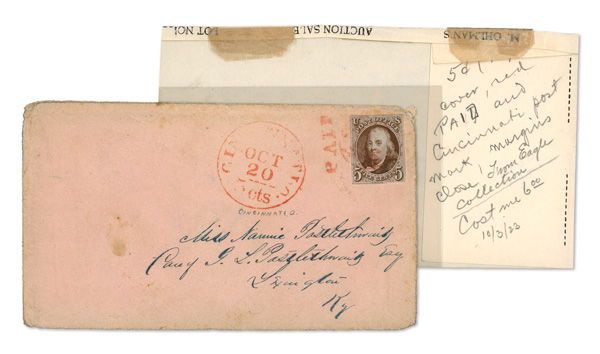 LOT NO.
AUCTION SALE
M. OHLMAN'S
5¢
cover, red
PAID and
Cincinnati, post
mark, margins
close, From Eagle
collection
Cost me 6.00
10/3/23
CINCINNATI, O.
OCT
20
5 cts
PAID
POST OFFICE
5 5
CINCINNATI, O.
Miss Nannie Postlethwaite
Care of G. L. Postlethwaite Esq
Lexington
Ky